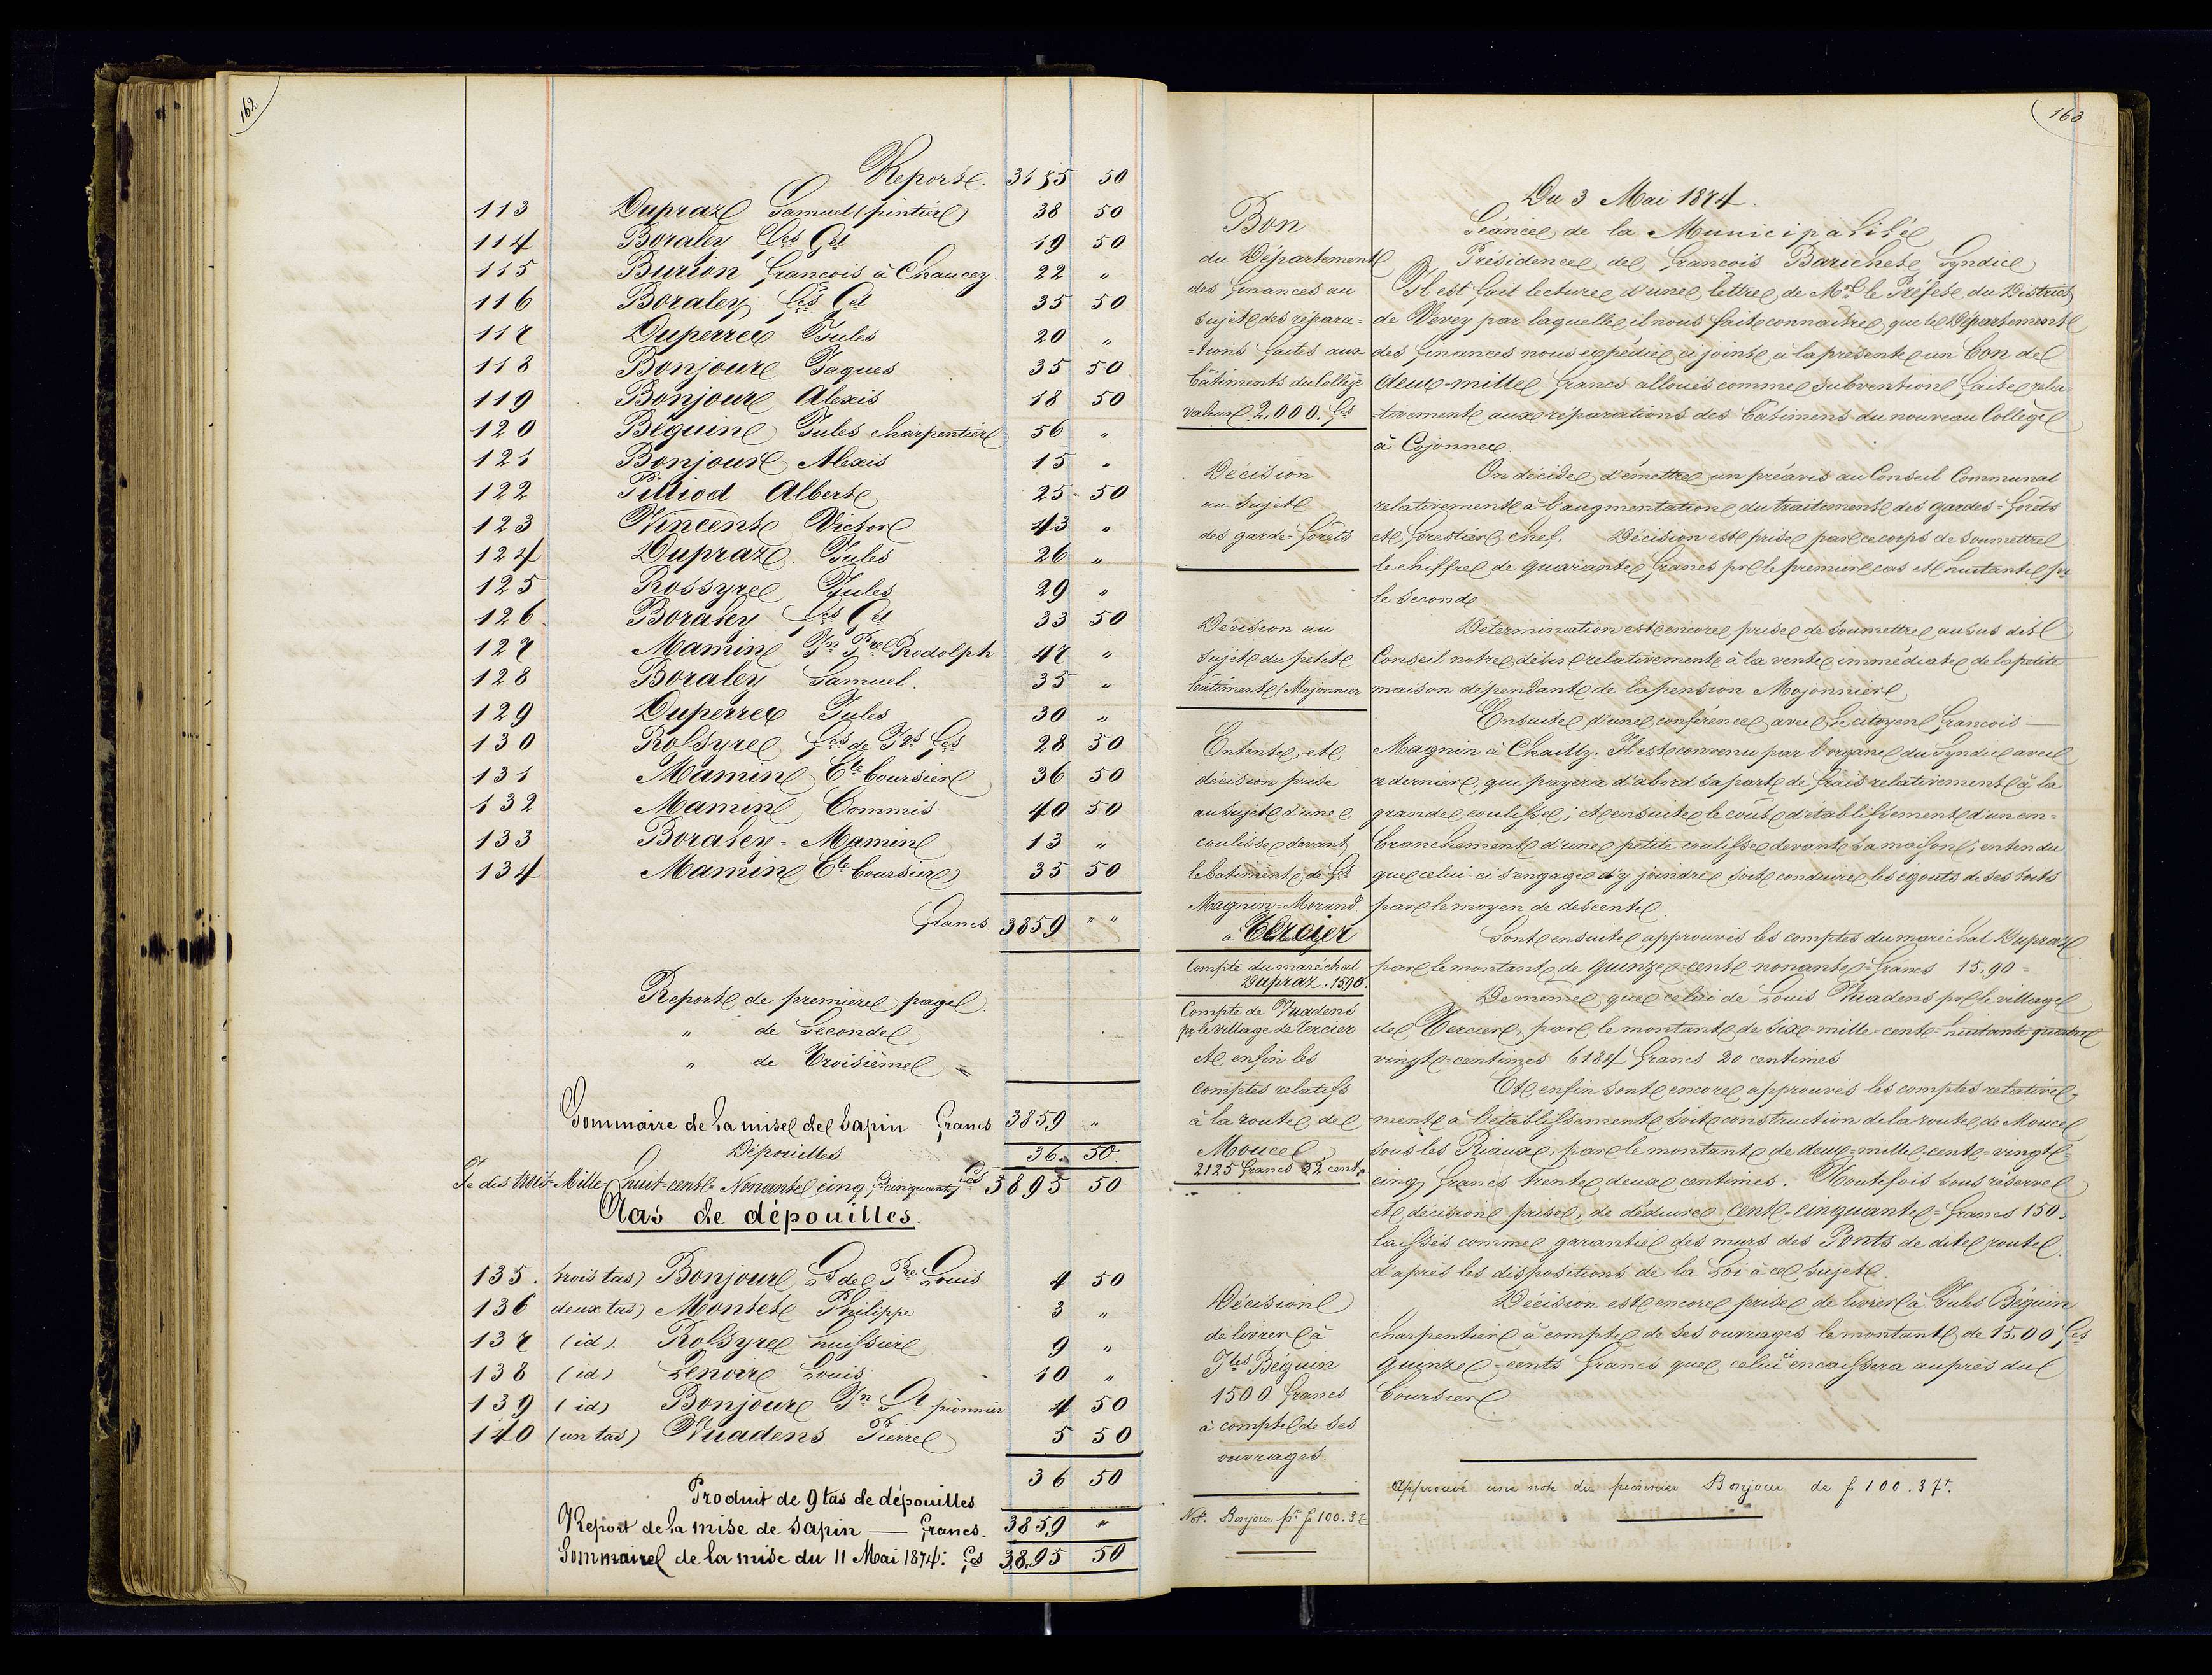 162
Report. 3185 50
113 Dupraz Samuel (pintier) 38 50
114 Boraley Fcs Gel 19 50
115 Burion François à Chaucey. 22 "
116 Boraley Fcs Gel 35 50
117 Duperrex Jules 20 "
118 Bonjour Jaques 35 50
119 Bonjour Alexis 18 50
120 Béguin Jules charpentier 56 "
121 Bonjour Alexis 15 "
122 Pilliod Albert 25 50
123 Vincent Victor 43 "
124 Dupraz Jules 26 "
125 Rossyre Jules 29 "
126 Boraley Fcs Gel 33 50
127 Mamin Jn Pre Rodolph 47 "
128 Boraley Samuel. 35 "
129 Duperrex Jules 30 "
130 Rossyre Fcs de Jqs Fcs 28 50
131 Mamin Cte boursier 36 50
132 Mamin Commis 40 50
133 Boraley-Mamin 13 "
134 Mamin Cte boursier 35 50
Francs. 3859 " "
Report de première page
" de Seconde
" de Troisième
Sommaire de la mise de sapin Francs 3859 "
Dépouilles 36. 50.
Je dis trois-Mille-huit-cent-Nonante cinq Fr cinquante Ces 3895 50
Tas de dépouilles.
135. trois tas) Bonjour Ls de Pre Louis 4 50
136 deux tas) Montet Philippe 3 "
137 (id). Rossyre huissier 9 "
138 (id) Lenoir Louis 10 "
139 (id) Bonjour Jn Lt pionnier 4 50
140 (un tas) Vuadens Pierre 5 50
36 50
Produit de 9 tas de dépouilles
Report de la mise de sapin — Francs. 3859 "
Sommaire de la mise du 11 Mai 1874: Fcs 3895 50
163
Du 3 Mai 1874.
Séance de la Municipalité
Présidence de François Barichet Syndic
Bon
du Département
des finances au
sujet des répara-
=tions faites aux
bâtiments du Collège
valeur 2.000. Fcs
Il est fait lecture d'une lettre de Mr le Préfet du District
de Vevey par laquelle il nous fait connaitre que le Département
des finances nous expédie ci joint à la présente un bon de
deux-mille francs alloués comme subvention faite rela-
=tivement aux réparations des bâtimens du nouveau Collège
à Cojonnex.
Décision
au sujet
des garde-forêts
On décide d'émettre un préavis au Conseil Communal
relativement à l'augmentation du traitement des gardes-forêts
et forestier chef. Décision est prise par ce corps de soumettre
le chiffre de quarante francs pr le premier cas et huitante pr
le second.
Décision au
sujet du petit
bâtiment (Mojonnier
Détermination est encore prise de soumettre au sus dit
Conseil notre désir relativement à la vente immédiate de la petite
maison dépendant de la pension Mojonnier
Entente, et
décision prise
au sujet d'une
coulisse devant
le batiment de Fs
Magnin-Morand
à Tercier
Ensuite d'une conférence avec le citoyen François
Magnin à Chailly. Il est convenu par l'organe du Syndic avec
ce dernier, qui payera d'abord sa part de frais relativement à la
grande coulisse; et ensuite le coût d'établissement d'un em-
branchement d'une petite coulisse devant sa maison; entendu
que celui-ci s'engage d'y joindre soit conduire les égouts de ses toits
par le moyen de descente
Compte du maréchal
Dupraz. 1590.
Sont ensuite approuvés les comptes du maréchal Dupraz
par le montant de quinze-cent-nonante-francs 15.90=
Compte de Vuadens
pr le village de Tercier
De même que celui de Louis Vuadens pr le village
de Tercier, par le montant de six-mille-cent-huitante-quatre
vingt-centimes 6184 francs 20 centimes
et enfin les
comptes relatifs
à la route de
Moucel
2125 francs 32 cent.
Et enfin sont encore approuvés les comptes relative-
ment à l'établissement soit construction de la route de Moucel
sous les Riaux, par le montant de deux-mille-cent-vingt-
cinq francs trente deux centimes. Toutefois sous réserve
et décision prise, de déduire cent-cinquante-francs 150.
laissés comme garantie des murs des Ponts de dite route
d'après les dispositions de la Loi à ce sujet.
Décision
de livrer à
Jles Béguin
1500 francs
à compte de ses
ouvrages.
Décision est encore prise de livrer à Jules Béguin
charpentier à compte de ses ouvrages le montant de 15.00 Fcs
quinze-cents francs que celui ci encaissera auprès du
boursier
Not. Bonjour pr f 100.37
Approuvé une note du pionnier Bonjour de f. 100.37.